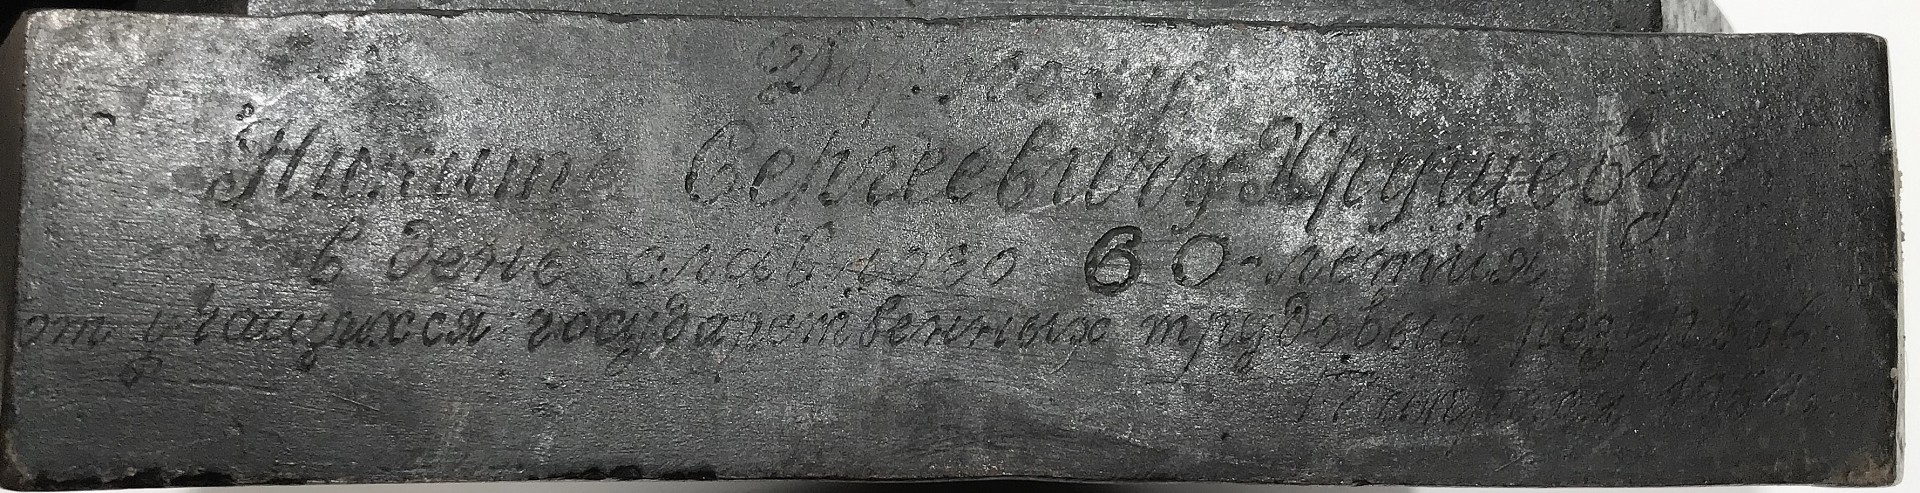 Никите Сергеевичу Хрущеву
в день славного 60-летия
от учащихся государственных трудовых резервов.
1954